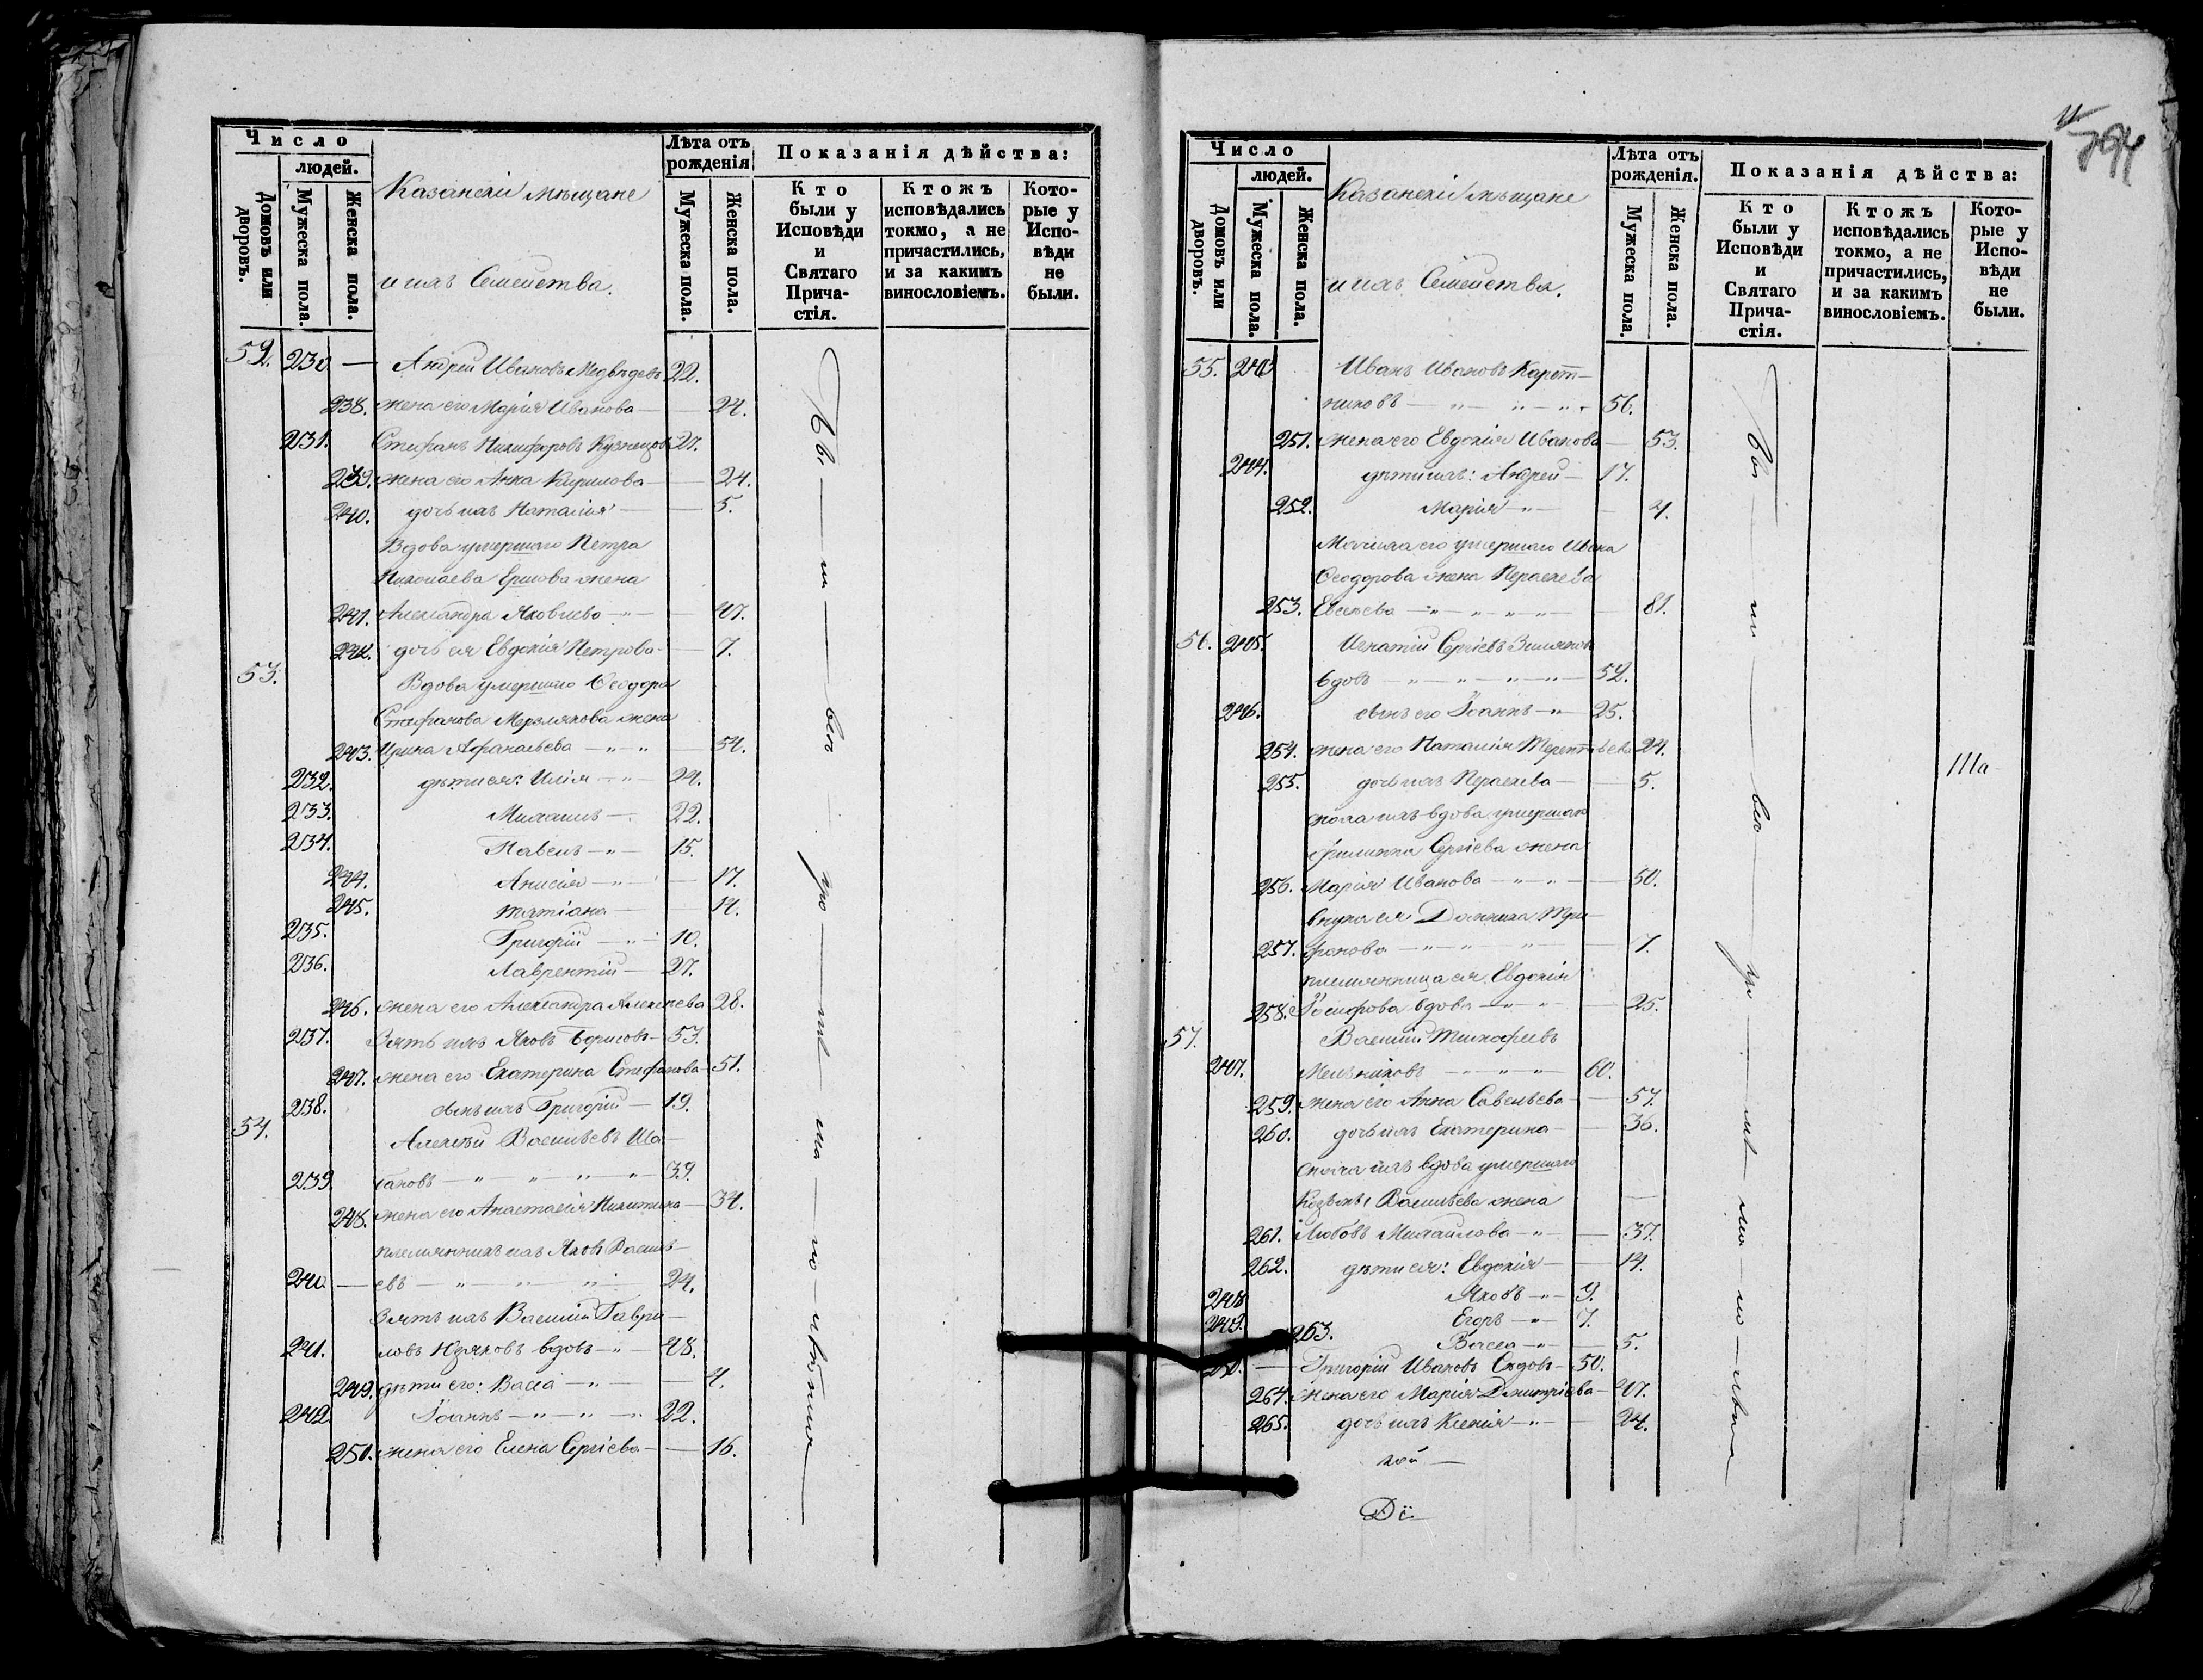 Число
людей.
Домовъ или дворовъ.
Мужеска пола.
Женска пола.
Казанскіи мѣщане
и ихъ Семейства.
Лѣта отъ рожденія
Мужеска пола.
Женска пола.
Показанія дѣйства:
Кто были у Исповѣди и Святаго Причастія.
Ктожъ исповѣдались токмо, а не причастились, и за какимъ винословіемъ.
Которые у Исповѣди не были.
52. 230 — Андрей Ивановъ Медвѣдевъ 22.
238. жена его Марія Иванова — 24.
231. Стефанъ Никифоровъ Кузнецовъ 27.
239. жена его Анна Кирилова — 24.
240. дочь ихъ Наталія — 5.
Вдова умершаго Петра
Николаева Ершова жена
241. Александра Яковлева — 47.
242. дочь ея Евдокія Петрова — 7.
53. Вдова умершаго Ѳеодора
Стефанова Мерзлякова жена
243. Ирина Афанасьева — 54.
232. дѣти ея: Илія — 24.
233. Михаилъ — 22.
234. Павелъ — 15.
244. Анисія — 17.
245. Татіана — 14.
235. Григорій — 10.
236. Лаврентій — 27.
246. жена его Александра Алексѣева 28.
237. Зять ихъ Яковъ Борисовъ — 53.
247. жена его Екатерина Стефанова — 51.
238. сынъ ихъ Григорій — 19.
54. Алексѣй Васильевъ Ша-
239. гановъ — 39.
248. жена его Анастасія Никитина — 34.
племянникъ ихъ Яковъ Василь-
240 — евъ — 24.
Зять ихъ Василій Гаври-
241. ловъ вдовъ — 48.
249. дѣти его: Васса — 4.
242. Іоаннъ — 22.
250. жена его Елена Сергіева — 16.
Число
людей.
Домовъ или дворовъ.
Мужеска пола.
Женска пола.
Казанскіи мѣщане
и ихъ Семейства.
Лѣта отъ рожденія.
Мужеска пола.
Женска пола.
Показанія дѣйства:
Кто были у Исповѣди и Святаго Причастія.
Ктожъ исповѣдались токмо, а не причастились, и за какимъ винословіемъ.
Которые у Исповѣди не были.
55. 243 Иванъ Ивановъ Карет-
никовъ — 56.
251. жена его Евдокія Иванова — 53.
244. дѣти ихъ: Андрей — 17.
252. Марія — 4.
Мачиха его умершаго Ивана
Ѳеодорова жена Параскева
253. Евсеева — 81.
56. 245. Игнатій Сергіевъ
вдовъ — 52.
246. сынъ его Іоаннъ — 25.
254. жена его Наталія Терентьева 24.
255. дочь ихъ Параскева — 5.
сноха ихъ вдова умершаго
Филиппа Сергіева жена
256. Марія Иванова — 50.
внука ея Домника Три-
257. фонова — 7.
племянница ея Евдокія
258. Іосифова вдова — 25.
57. Василій Тимофеевъ
247. Мельниковъ — 60.
259. жена его Анна Савельева — 57.
260. дочь ихъ Екатерина — 36.
сноха ихъ вдова умершаго
Васильева жена
261. Любовь Михайлова — 37.
262. дѣти ея: Евдокія — 14.
248 Яковъ — 9.
249. Егоръ — 7.
263. Васса — 5.
250. — Григорій Ивановъ Сѣдовъ — 50.
264. жена его Марія Димитріева — 47.
265. дочь ихъ Ксенія — 24.
кой —
Ді
Ша